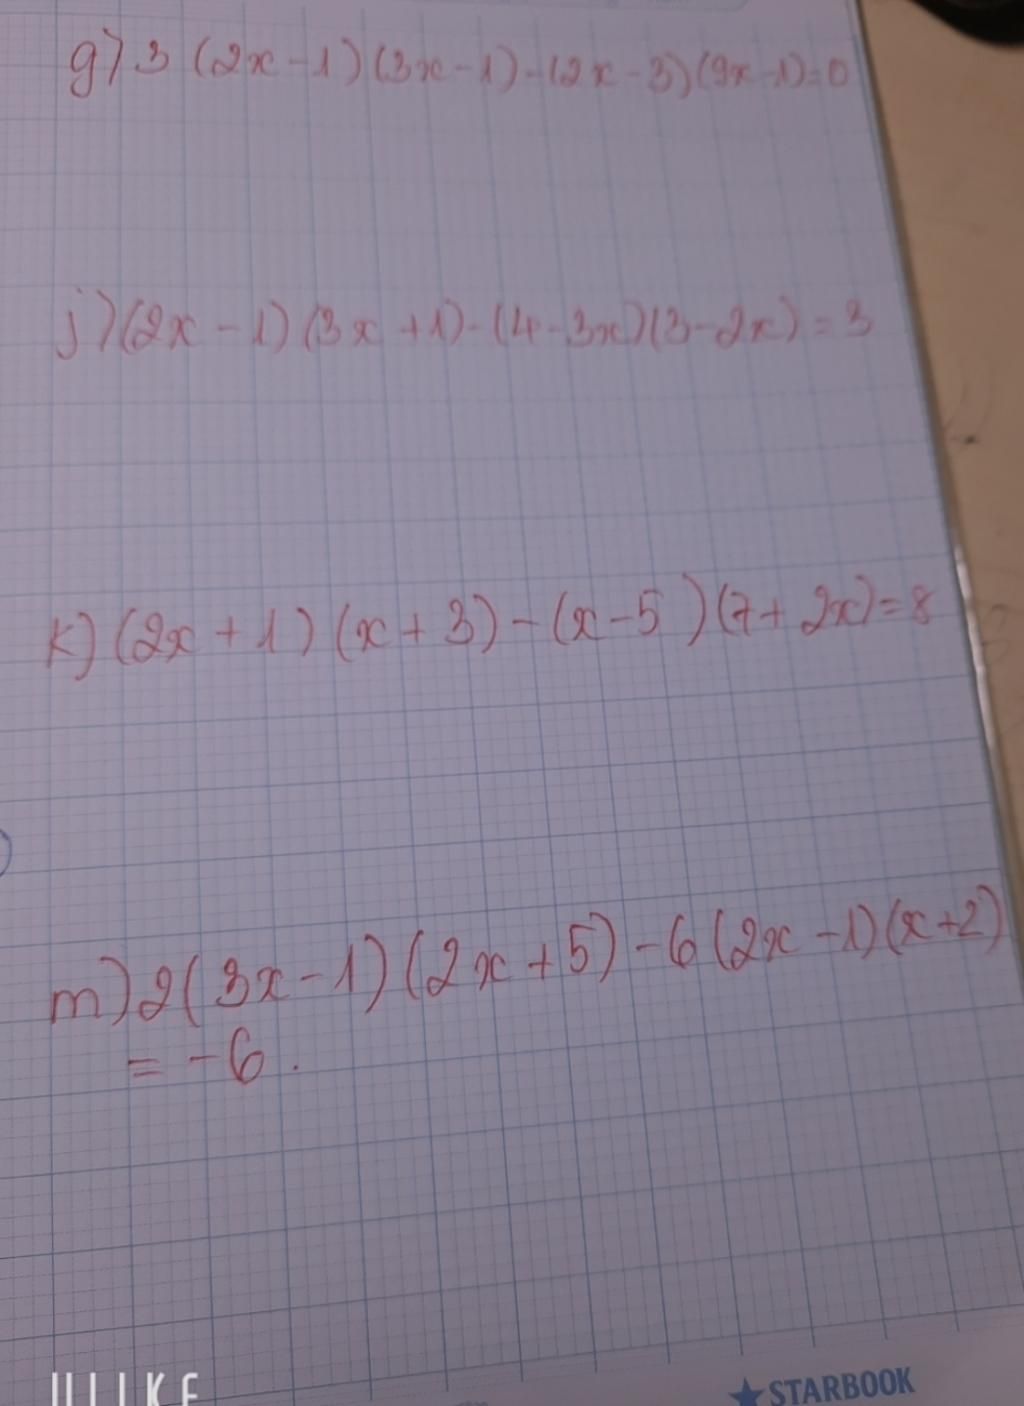 g) 3 (2x - 1) (3x - 1) - (2x - 3) (9x - 1) = 0
j) (2x - 1) (3x + 1) - (4 - 3x) (3 - 2x) = 3
K) (2x + 1) (x + 3) - (x - 5) (7 + 2x) = 8
m) 2 (3x - 1) (2x + 5) - 6 (2x - 1) (x + 2)
= - 6 .
★ STARBOOK